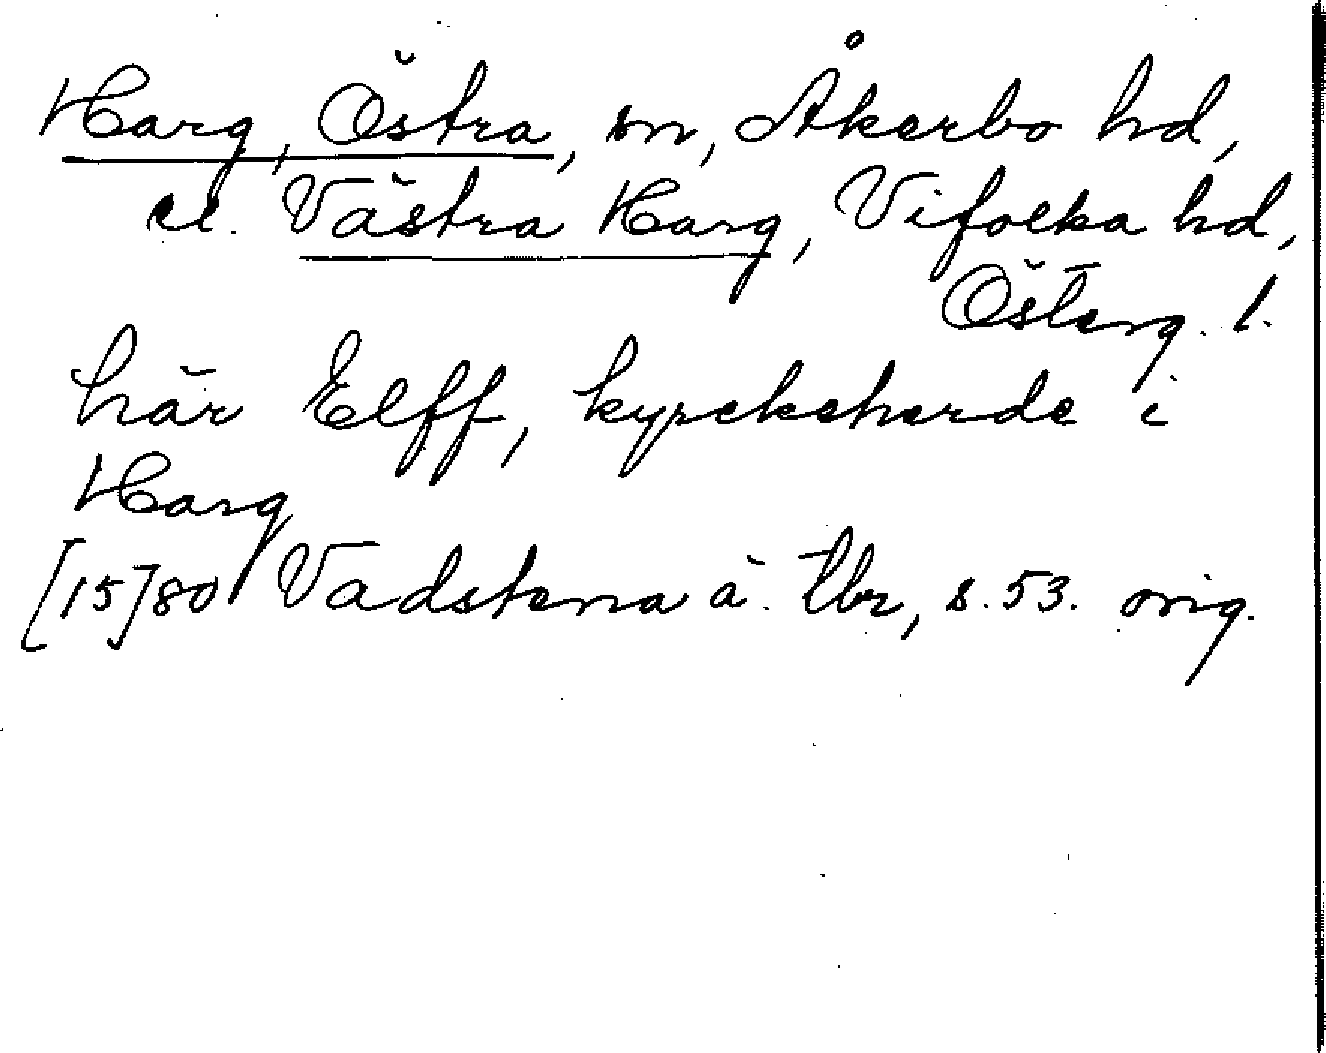 Harg, Östra, sn, Åkerbo hd,
el. Västra Harg, Vifolka hd,
Österg. l.
här Elff, kyrckeherde i
Harg
[15]80 Vadstena ä. tbr, s. 53. orig.